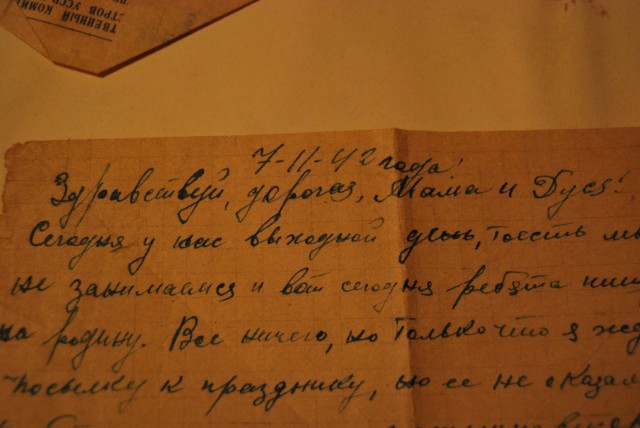 ТВЕННЫЙ КОМИ
ТРОВ УССР
7-11-42 года!
Здравствуй, дорогая, Мама и Дуся!
Сегодня у нас выходной день, тоесть мы
не занимаемся и вот сегодня ребята пиш
на родину. Все ничего, но только что я жд
посылку к празднику, но ее не оказал